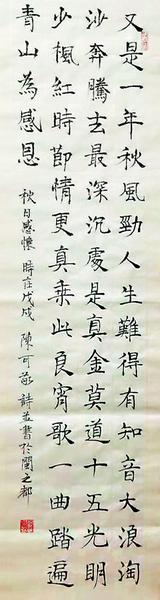 又是一年秋風勁人生難得有知音大浪淘
沙奔騰去最深沉處是真金莫道十五光明
少楓紅時節情更真乘此良宵歌一曲踏遍
青山為感恩 秋日感懷 時在戊戌 陳可 詩並書於閩之都